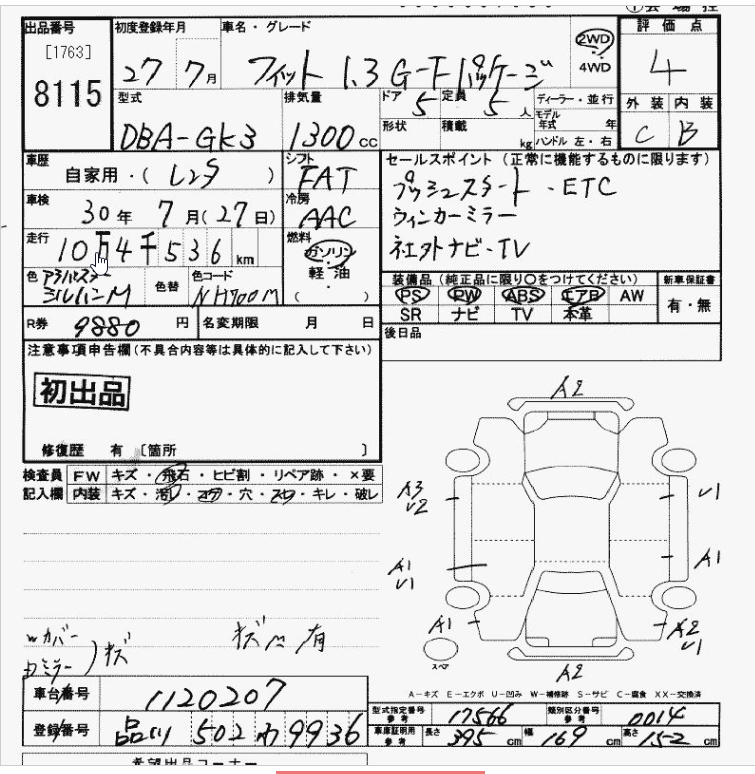 出品番号
[1763]
8115
初度登録年月
27 7月
車名・グレード
フィット 1.3 G-F パッケージ
2WD
4WD
評価点
4
型式
DBA-GK3
排気量
1300 cc
ドア
5
定員
5 人
ディーラー・並行
モデル年式 年
形状
積載 kg
ハンドル 左・右
外装 内装
C B
車歴
自家用・( レンタ )
シフト
FAT
車検
30年 7月(27日)
冷房
AAC
走行
10万4千536 km
燃料
ガソリン
軽油
( ・ )
色
シルバーM
色替
色コード
NH700M
R券
9880 円
名変期限 月 日
セールスポイント (正常に機能するものに限ります)
プッシュスタート・ETC
ウィンカーミラー
社外ナビ・TV
装備品 (純正品に限り○をつけてください)
PS PW ABS エアB AW
SR ナビ TV 本革
新車保証書
有・無
後日品
注意事項申告欄(不具合内容等は具体的に記入して下さい)
初出品
修復歴 有 〔箇所 〕
検査員 FW キズ・飛石・ヒビ割・リペア跡・×要
記入欄 内装 キズ・汚れ・コゲ・穴・スレ・キレ・破レ
A2
A3
U2
U1
A1
U1
A1
A1
A2
U1
スペア
A2
Wカバー
ミラー
キズ
キズ凹有
A-キズ E-エクボ U-凹み W-補修跡 S-サビ C-腐食 XX-交換済
車台番号
1120207
登録番号
品川 502 わ 9936
型式指定番号
参考
17566
類別区分番号
参考
0014
車庫証明用
参考
長さ 395 cm
幅 169 cm
高さ 152 cm
希望出品コーナー